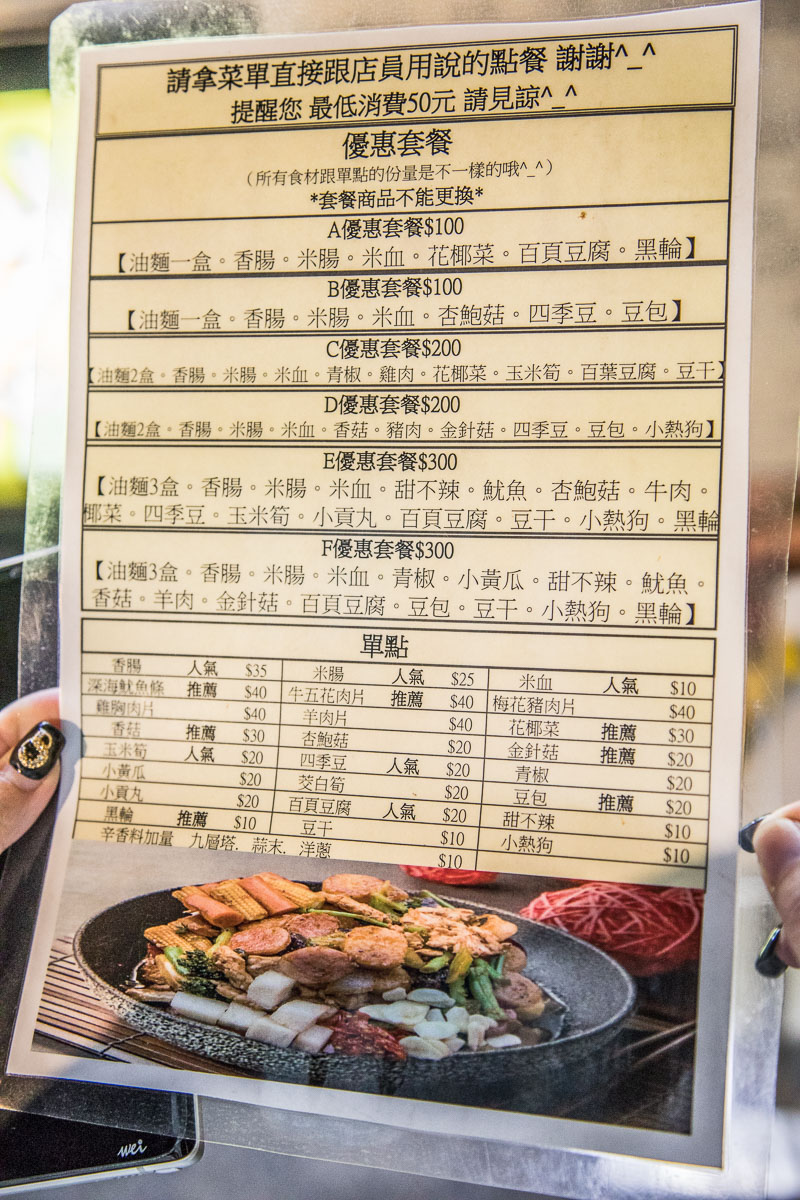 請拿菜單直接跟店員用說的點餐 謝謝^_^
提醒您 最低消費50元 請見諒^_^
優惠套餐
（所有食材跟單點的份量是不一樣的哦^_^）
*套餐商品不能更換*
A優惠套餐$100
【油麵一盒。香腸。米腸。米血。花椰菜。百頁豆腐。黑輪】
B優惠套餐$100
【油麵一盒。香腸。米腸。米血。杏鮑菇。四季豆。豆包】
C優惠套餐$200
【油麵2盒。香腸。米腸。米血。青椒。雞肉。花椰菜。玉米筍。百葉豆腐。豆干】
D優惠套餐$200
【油麵2盒。香腸。米腸。米血。香菇。豬肉。金針菇。四季豆。豆包。小熱狗】
E優惠套餐$300
【油麵3盒。香腸。米腸。米血。甜不辣。魷魚。杏鮑菇。牛肉。
椰菜。四季豆。玉米筍。小貢丸。百頁豆腐。豆干。小熱狗。黑輪
F優惠套餐$300
【油麵3盒。香腸。米腸。米血。青椒。小黃瓜。甜不辣。魷魚。
香菇。羊肉。金針菇。百頁豆腐。豆包。豆干。小熱狗。黑輪】
單點
香腸 人氣 $35 米腸 人氣 $25 米血 人氣 $10
深海魷魚條 推薦 $40 牛五花肉片 推薦 $40 梅花豬肉片 $40
雞胸肉片 $40 羊肉片 $40 花椰菜 推薦 $30
香菇 推薦 $30 杏鮑菇 $20 金針菇 推薦 $20
玉米筍 人氣 $20 四季豆 人氣 $20 青椒 $20
小黃瓜 $20 茭白筍 $20 豆包 推薦 $20
小貢丸 $20 百頁豆腐 人氣 $20 甜不辣 $10
黑輪 推薦 $10 豆干 $10 小熱狗 $10
辛香料加量 九層塔、蒜末、洋蔥 $10
wei